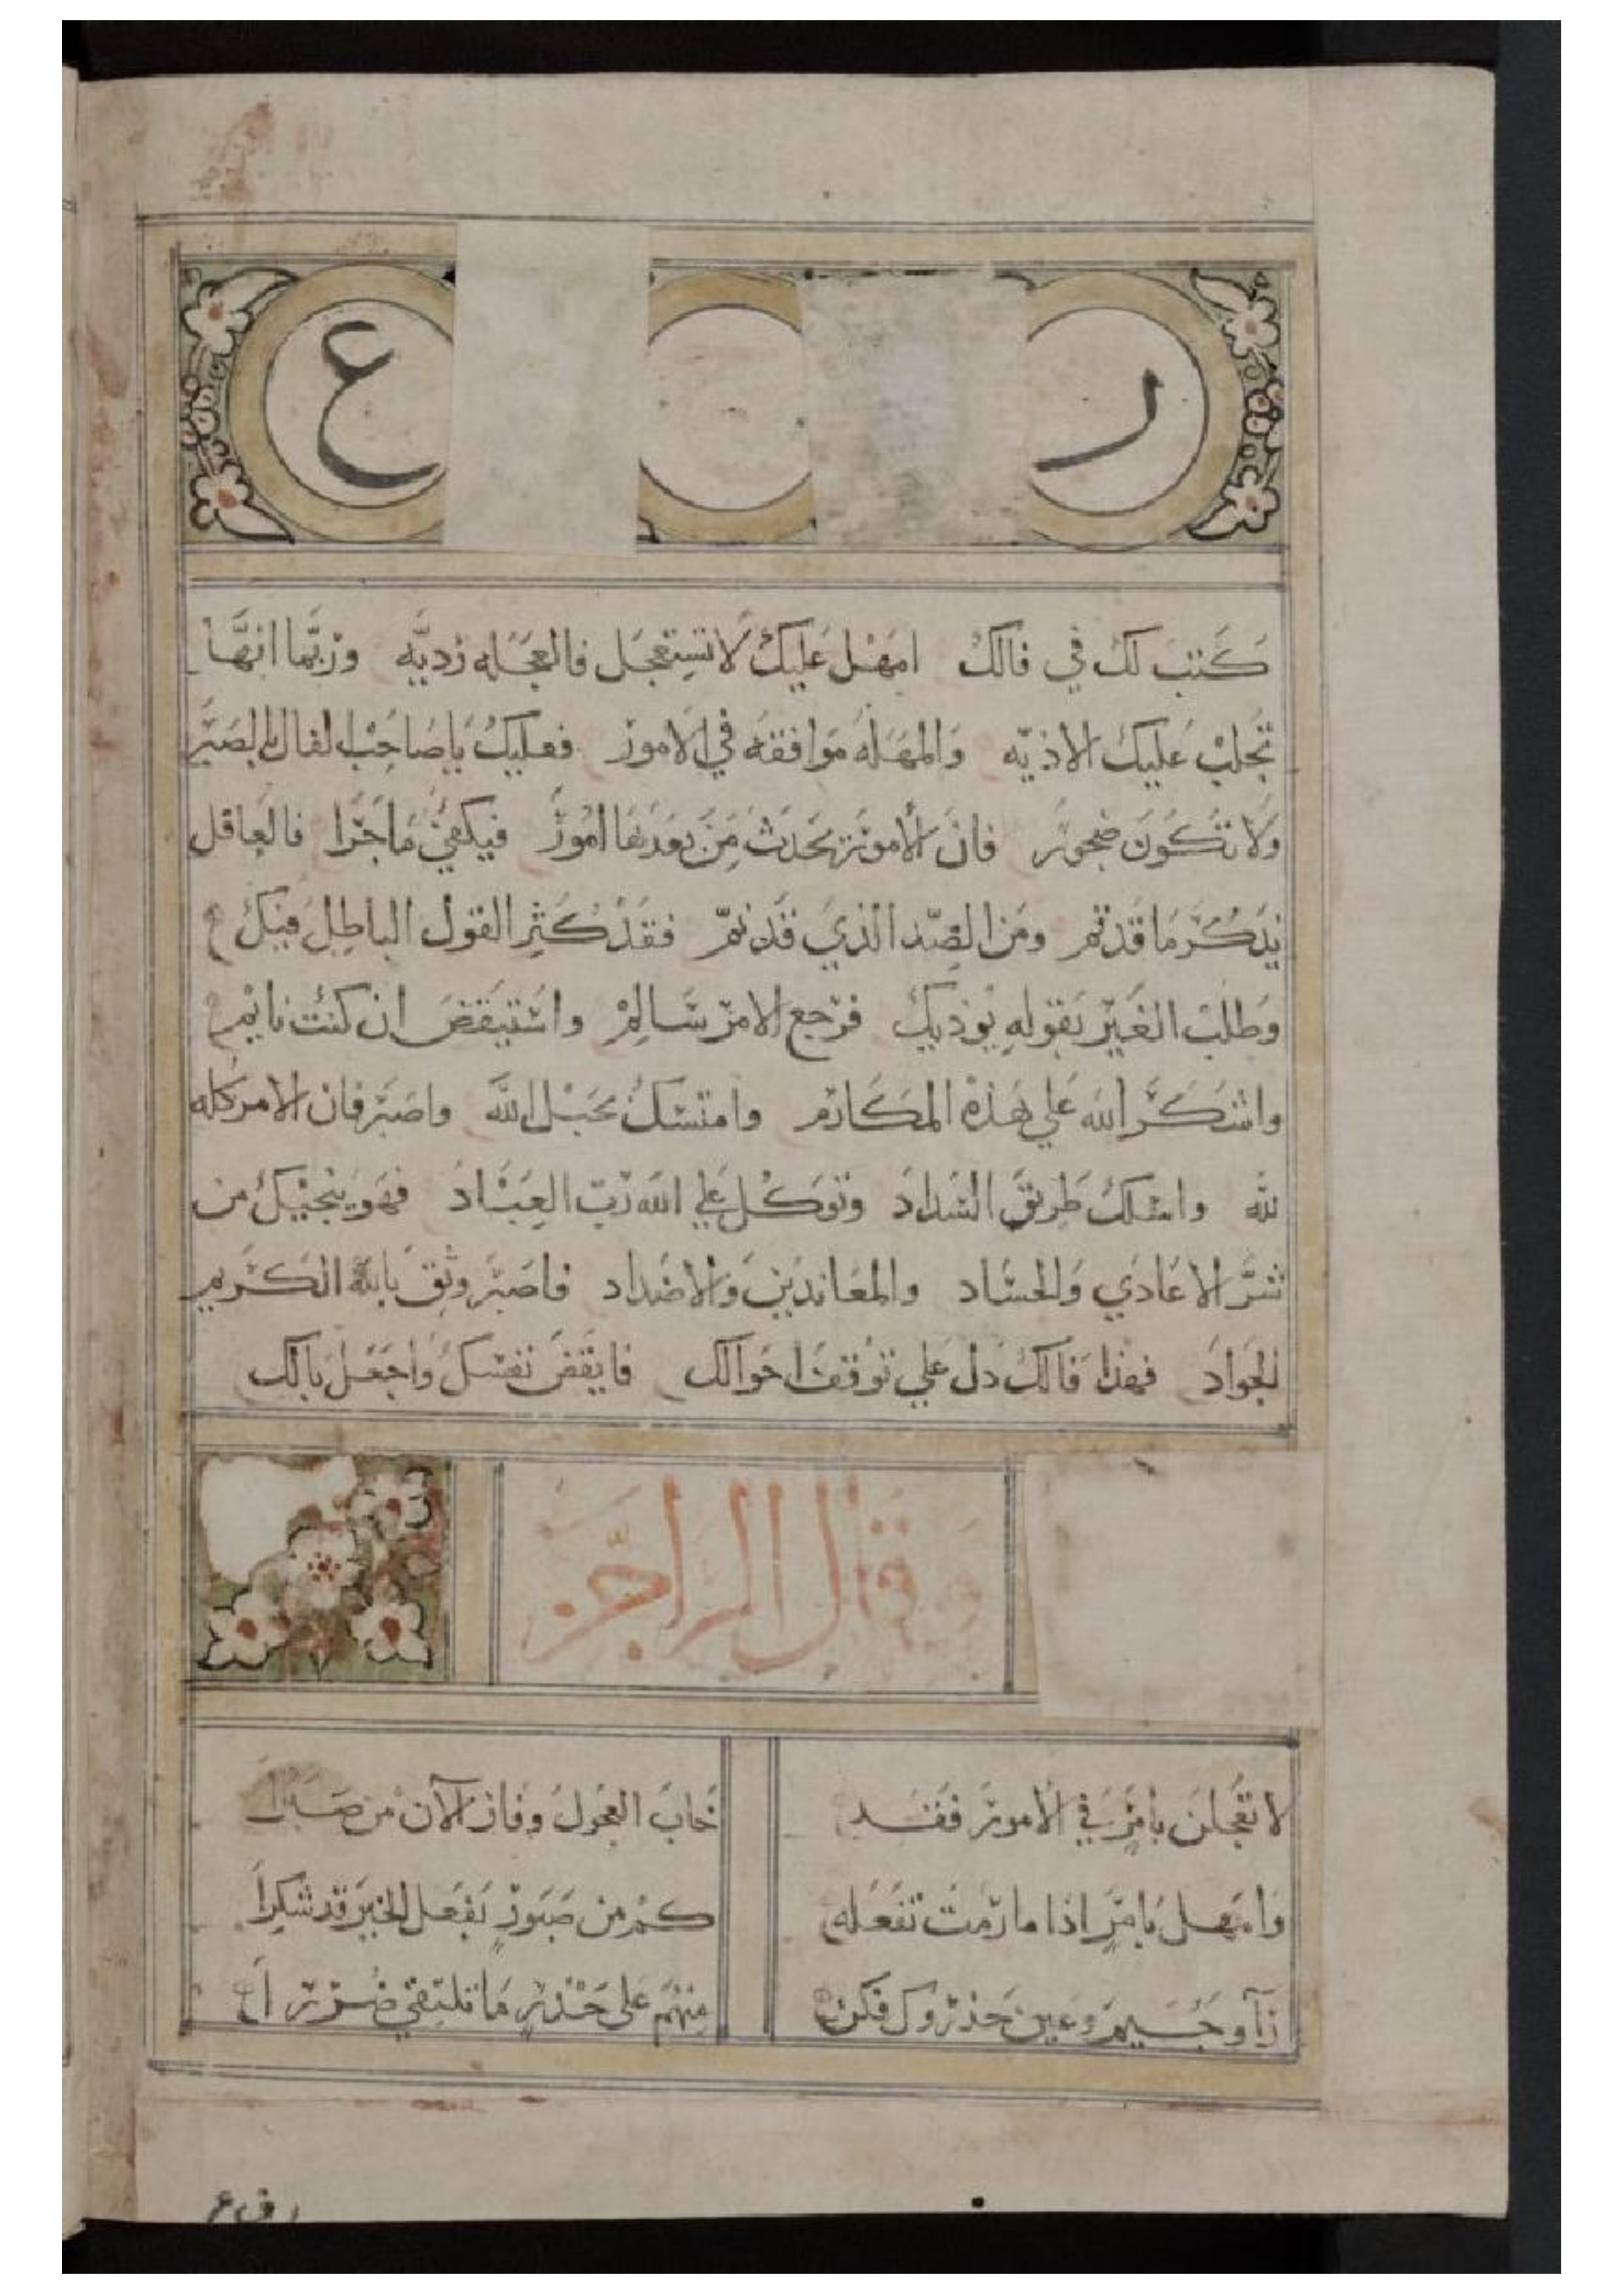 ر ع
كتب لك في فالك امهل عليك لا تستعجل فالعجله رديه وربما انها
تجلب عليك الاذيه والمهله موافقه في الامور فعليك يا صاحب الفال بالصبر
ولا تكون ضجور فان الامور تحدث من بعدها امور فيكفي ما جرا فالعاقل
يذكر ما قد تم ومن الضد الذي قد نم فقد كثر القول الباطل فيك
وطلب الغير بقوله يوذيك فرجع الامر سالم واستيقض ان كنت نايم
واشكر الله علي هذه المكارم وامتسك بحبل الله واصبر فان الامر كله
لله واسلك طريق السداد وتوكل علي الله رب العباد فهو ينجيك من
شر الاعادي والحساد والمعاندين والاضداد فاصبر وثق بالله الكريم
الجواد فهذا فالك دل علي توقف احوالك فايقض نفسك واجعل بالك
وقال الراجز
لا تعجلن بامر في الامور فقد خاب العجول وفاز الآن من صبرا
وامهل بامر اذا ما رمت تفعله كم من صبور بفعل الخير قد شكرا
رآ وجيم وعين حذروك فكن منهم على حذر ما تلتقي ضررا